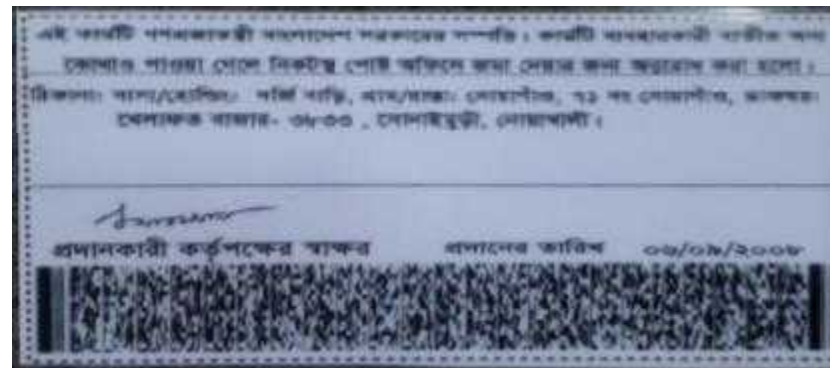 এই কার্ডটি গণপ্রজাতন্ত্রী বাংলাদেশ সরকারের সম্পত্তি। কার্ডটি ব্যবহারকারী ব্যতীত অন্য
কোথাও পাওয়া গেলে নিকটস্থ পোষ্ট অফিসে জমা দেবার জন্য অনুরোধ করা হলো।
ঠিকানা: বাসা/হোল্ডিং: বাড়ি, গ্রাম/রাস্তা: ৭১ নং ডাকঘর:
বাজার- ৩৮৩৩, সোনাইমুড়ী, নোয়াখালী।
প্রদানকারী কর্তৃপক্ষের স্বাক্ষর প্রদানের তারিখ